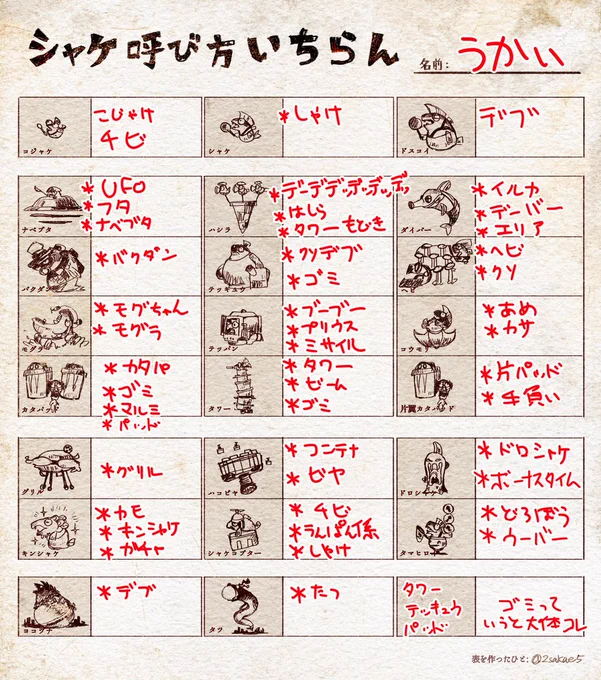 シャケ呼び方いちらん
名前: うかい
コジャケ
こじゃけ
チビ
シャケ
*しゃけ
ドスコイ
デブ
ナベブタ
*UFO
*フタ
*ナベブタ
ハシラ
*デーデデッデッデッデッ
*はしら
*タワーもどき
ダイバー
*イルカ
*デーバー
*エリア
バクダン
*バクダン
テッキュウ
*クソデブ
*ゴミ
ヘビ
*ヘビ
*クソ
モグラ
*モグちゃん
*モグラ
テッパン
*ブーブー
*プリウス
*ミサイル
コウモリ
*あめ
*カサ
カタパッド
*カタパ
*ゴミ
*マルミ
*パッド
タワー
*タワー
*ビーム
*ゴミ
片翼カタパッド
*片パッド
*手負い
グリル
*グリル
ハコビヤ
*コンテナ
*ビヤ
ドロシャケ
*ドロシャケ
*ボーナスタイム
キンシャケ
*カモ
*キンシャケ
*ガチャ
シャケコプター
*チビ
*うんぱん係
*しゃけ
タマヒロイ
*どろぼう
*ウーバー
ヨコヅナ
*デブ
タツ
*たつ
タワー
テッキュウ
パッド
ゴミって
いうと大体コレ
表を作ったひと: @2sakae5